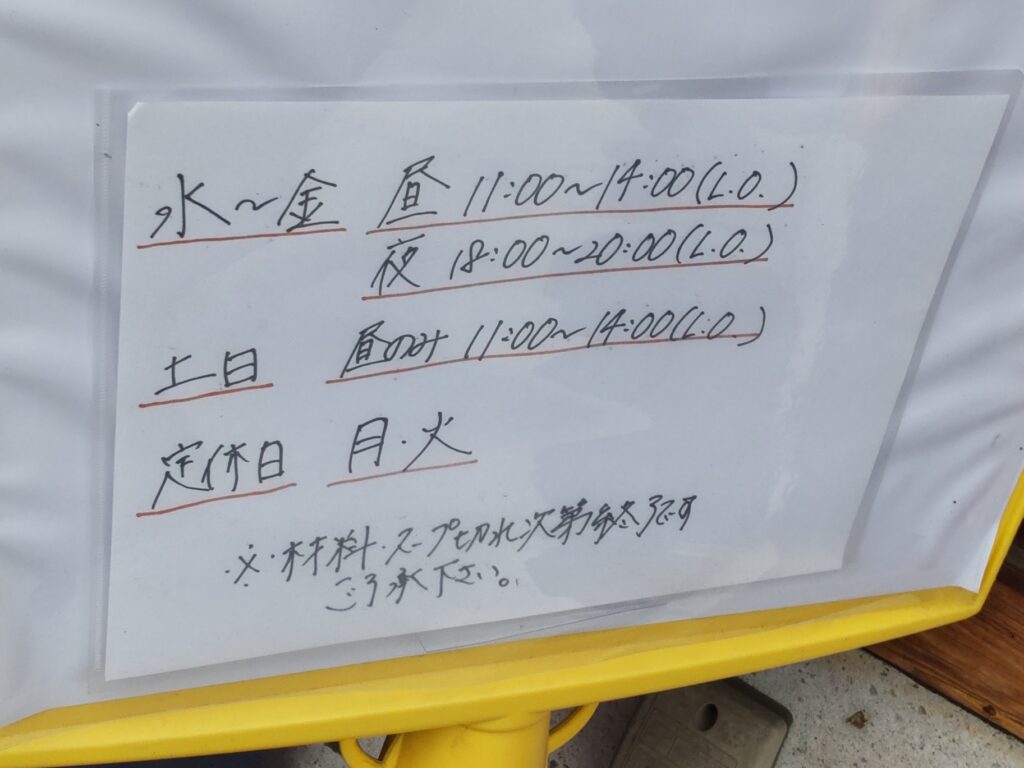 水～金 昼 11:00～14:00(L.O.)
夜 18:00～20:00(L.O.)
土日 昼のみ 11:00～14:00(L.O.)
定休日 月・火
※・材料・スープ切れ次第終了です
ご了承下さい。